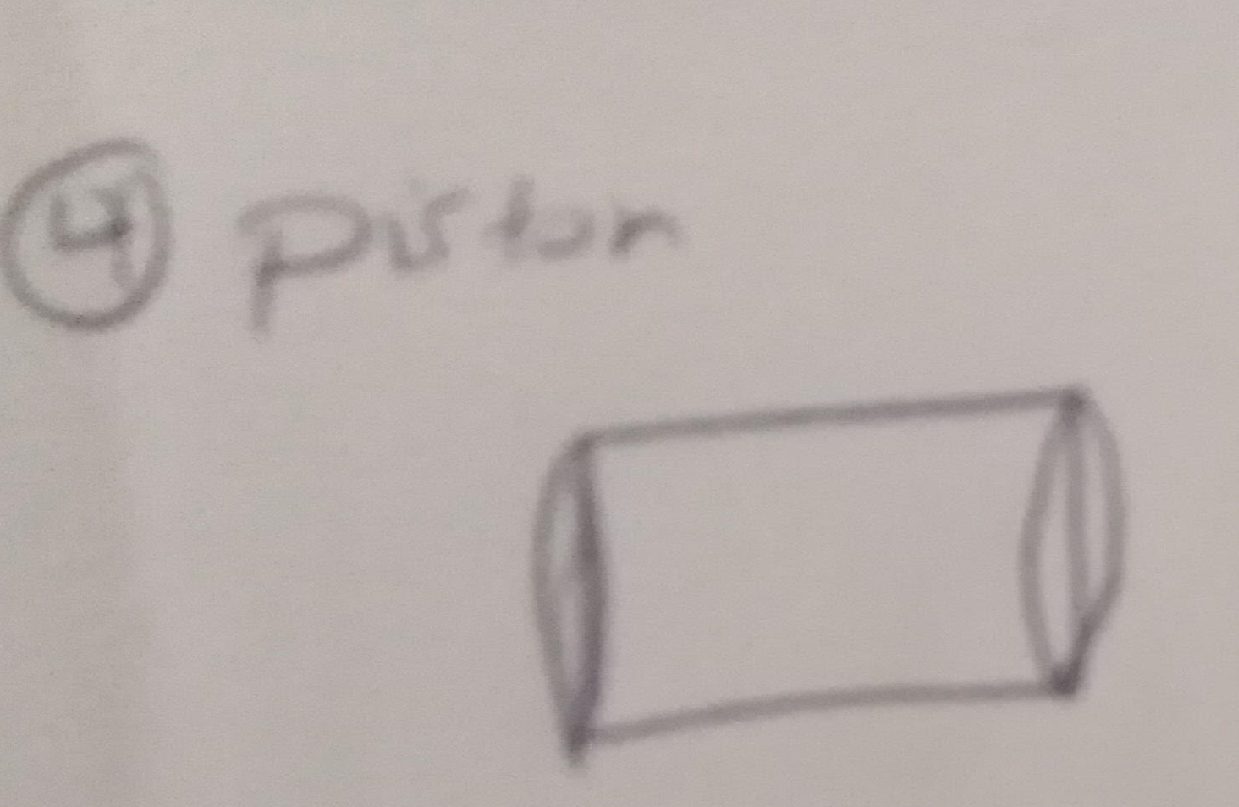 ④ Piston